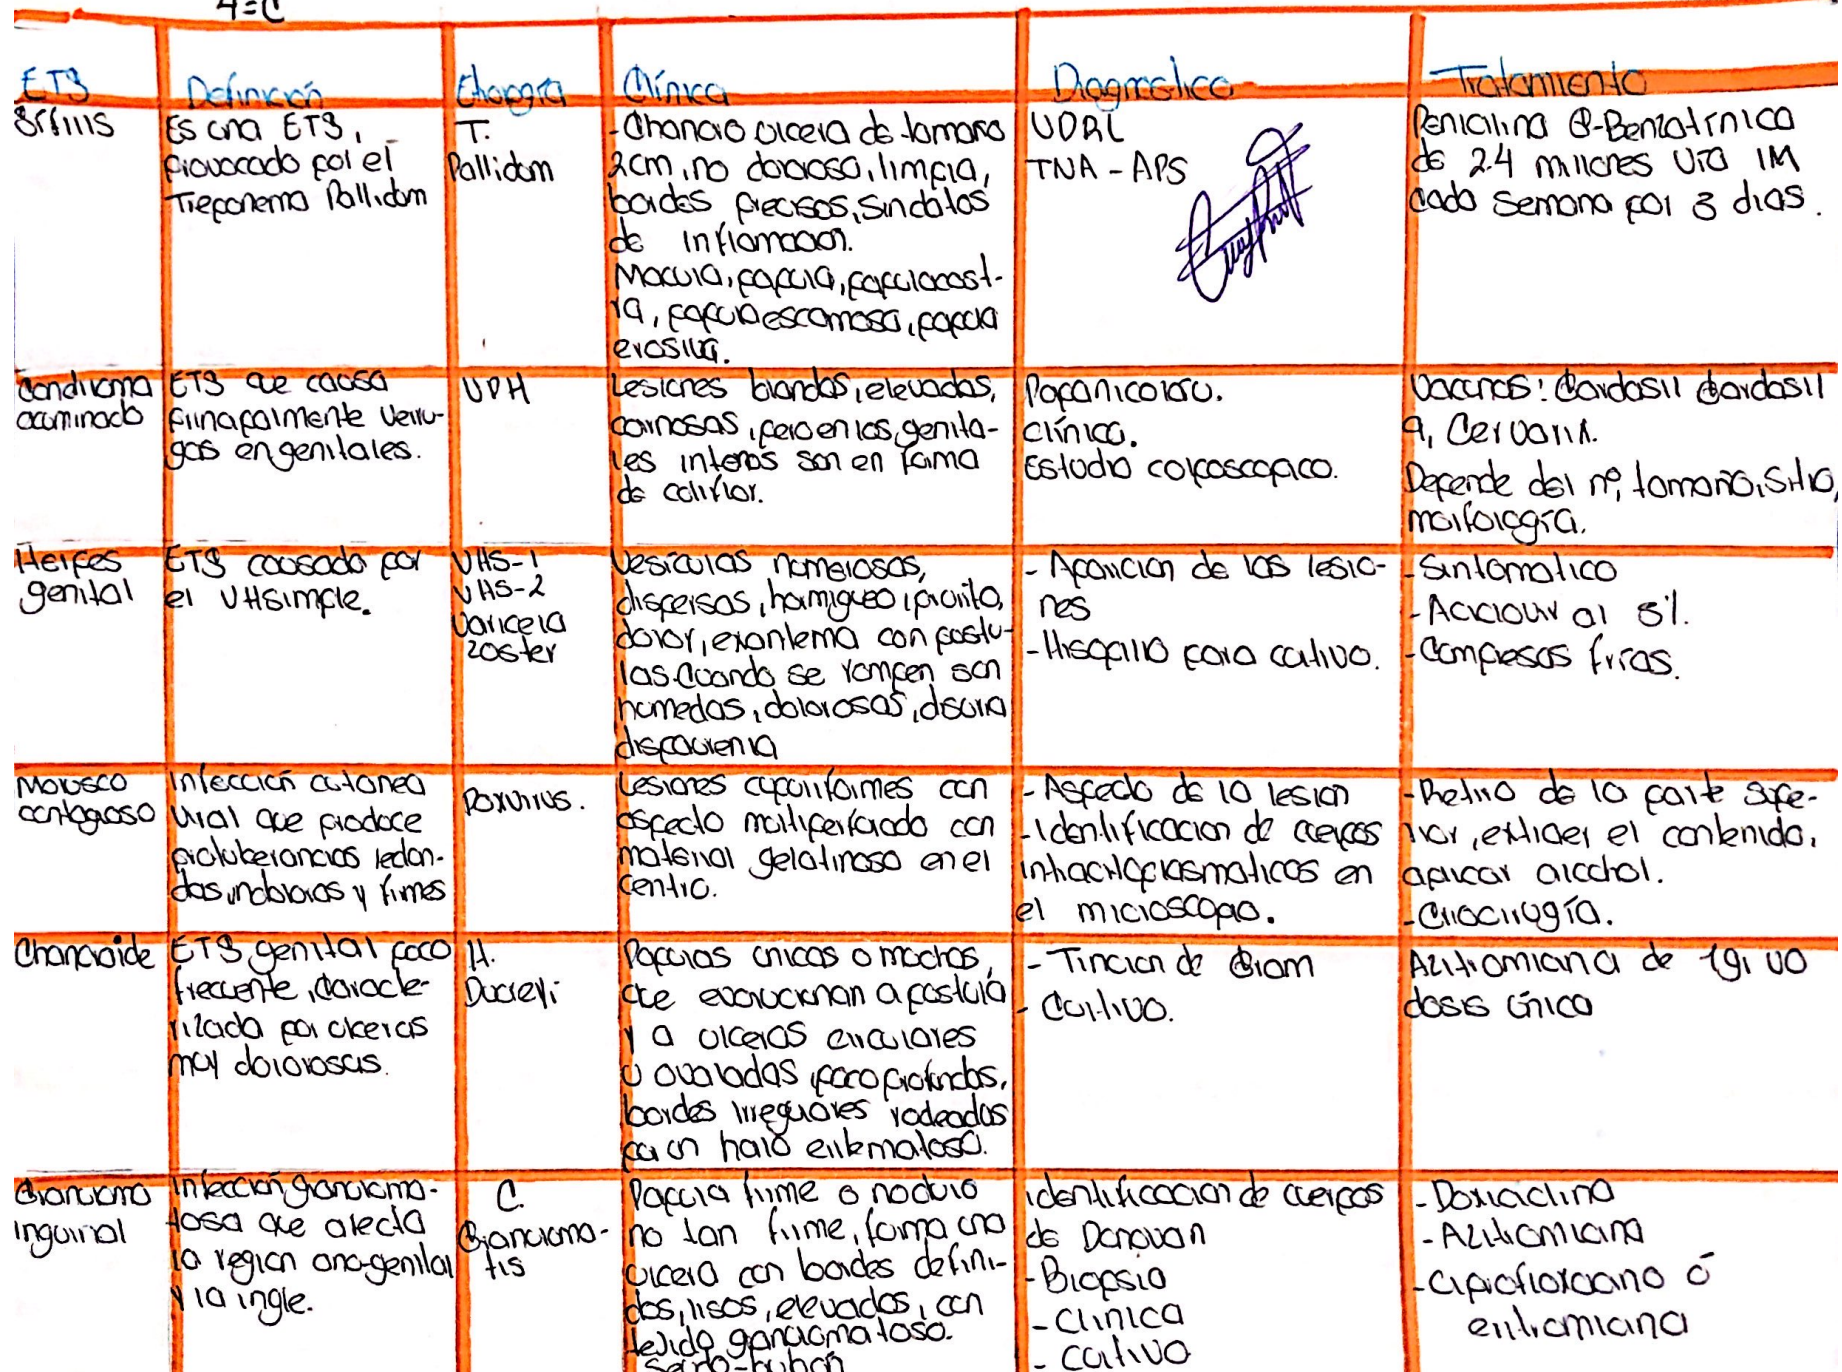 4=C
ETS Definición Etiología Clínica Diagnostico Tratamiento
Sífilis
Es una ETS,
provocado por el
Treponema Pallidum
T.
Pallidum
-Chancro ulcera de tamaño
2cm, no dolorosa, limpia,
bordes precisos, sin datos
de inflamacion.
Macula, papula, papulacost-
ra, papula escamosa, papula
erosiva.
VDRL
TNA-APS
Penicilina G-Benzatínica
de 2.4 millones UTO IM
cada semana por 3 dias.
Condiloma
acuminado
ETS que causa
principalmente verru-
gas en genitales.
VPH
Lesiones blandas, elevadas,
carnosas, pero en los genita-
les internos son en forma
de coliflor.
Papanicolau.
clínica.
Estudio colposcopico.
Vacunas: Gardasil Gardasil
9, Cervarix.
Depende del nº, tamaño, sitio,
morfología.
Herpes
genital
ETS causada por
el VHSimple.
VHS-1
VHS-2
Varicela
zoster
Vesiculas numerosas,
dispersas, hormigueo, prurito,
dolor, exantema con pustu-
las. Cuando se rompen son
humedas, dolorosas, disuria
dispaurenia
- Aparicion de las lesio-
nes
- Hisopillo para cultivo.
-Sintomatico
-Aciclovir al 5%.
-Compresas frías.
Molusco
contagioso
Infección cutanea
viral que produce
protuberancias redon-
das, indoloras y firmes
Poxvirus.
Lesiones cupuliformes con
aspecto multiperforado con
material gelatinoso en el
centro.
- Aspecto de la lesion
-identificacion de cuerpos
intracitoplasmaticos en
el microscopio.
-Retiro de la parte supe-
rior, extraer el contenido,
aplicar alcohol.
-Criocirugía.
Chancroide
ETS genital poco
frecuente, caracte-
rizada por ulceras
muy dolorosas.
H.
Ducreyi
Papulas unicas o muchas,
que evolucionan a pustula
y a ulceras circulares
u ovaladas, poco profundas,
bordes irregulares rodeados
por un halo eritematoso.
- Tincion de Gram
- Cultivo.
Azitromicina de 1gr VO
dosis única
Granuloma
inguinal
Infección granuloma-
tosa que afecta
la region ano-genital
y la ingle.
C.
Granuloma-
tis
Papula firme o nodulo
no tan firme, forma una
ulcera con bordes defini-
dos, lisos, elevados, con
tejido granulomatoso.
Seudo-bubón
identificacion de cuerpos
de Donovan
-Biopsia
-Clinica
- Cultivo
-Doxiciclina
-Azitromicina
-Ciprofloxacino ó
eritromicina